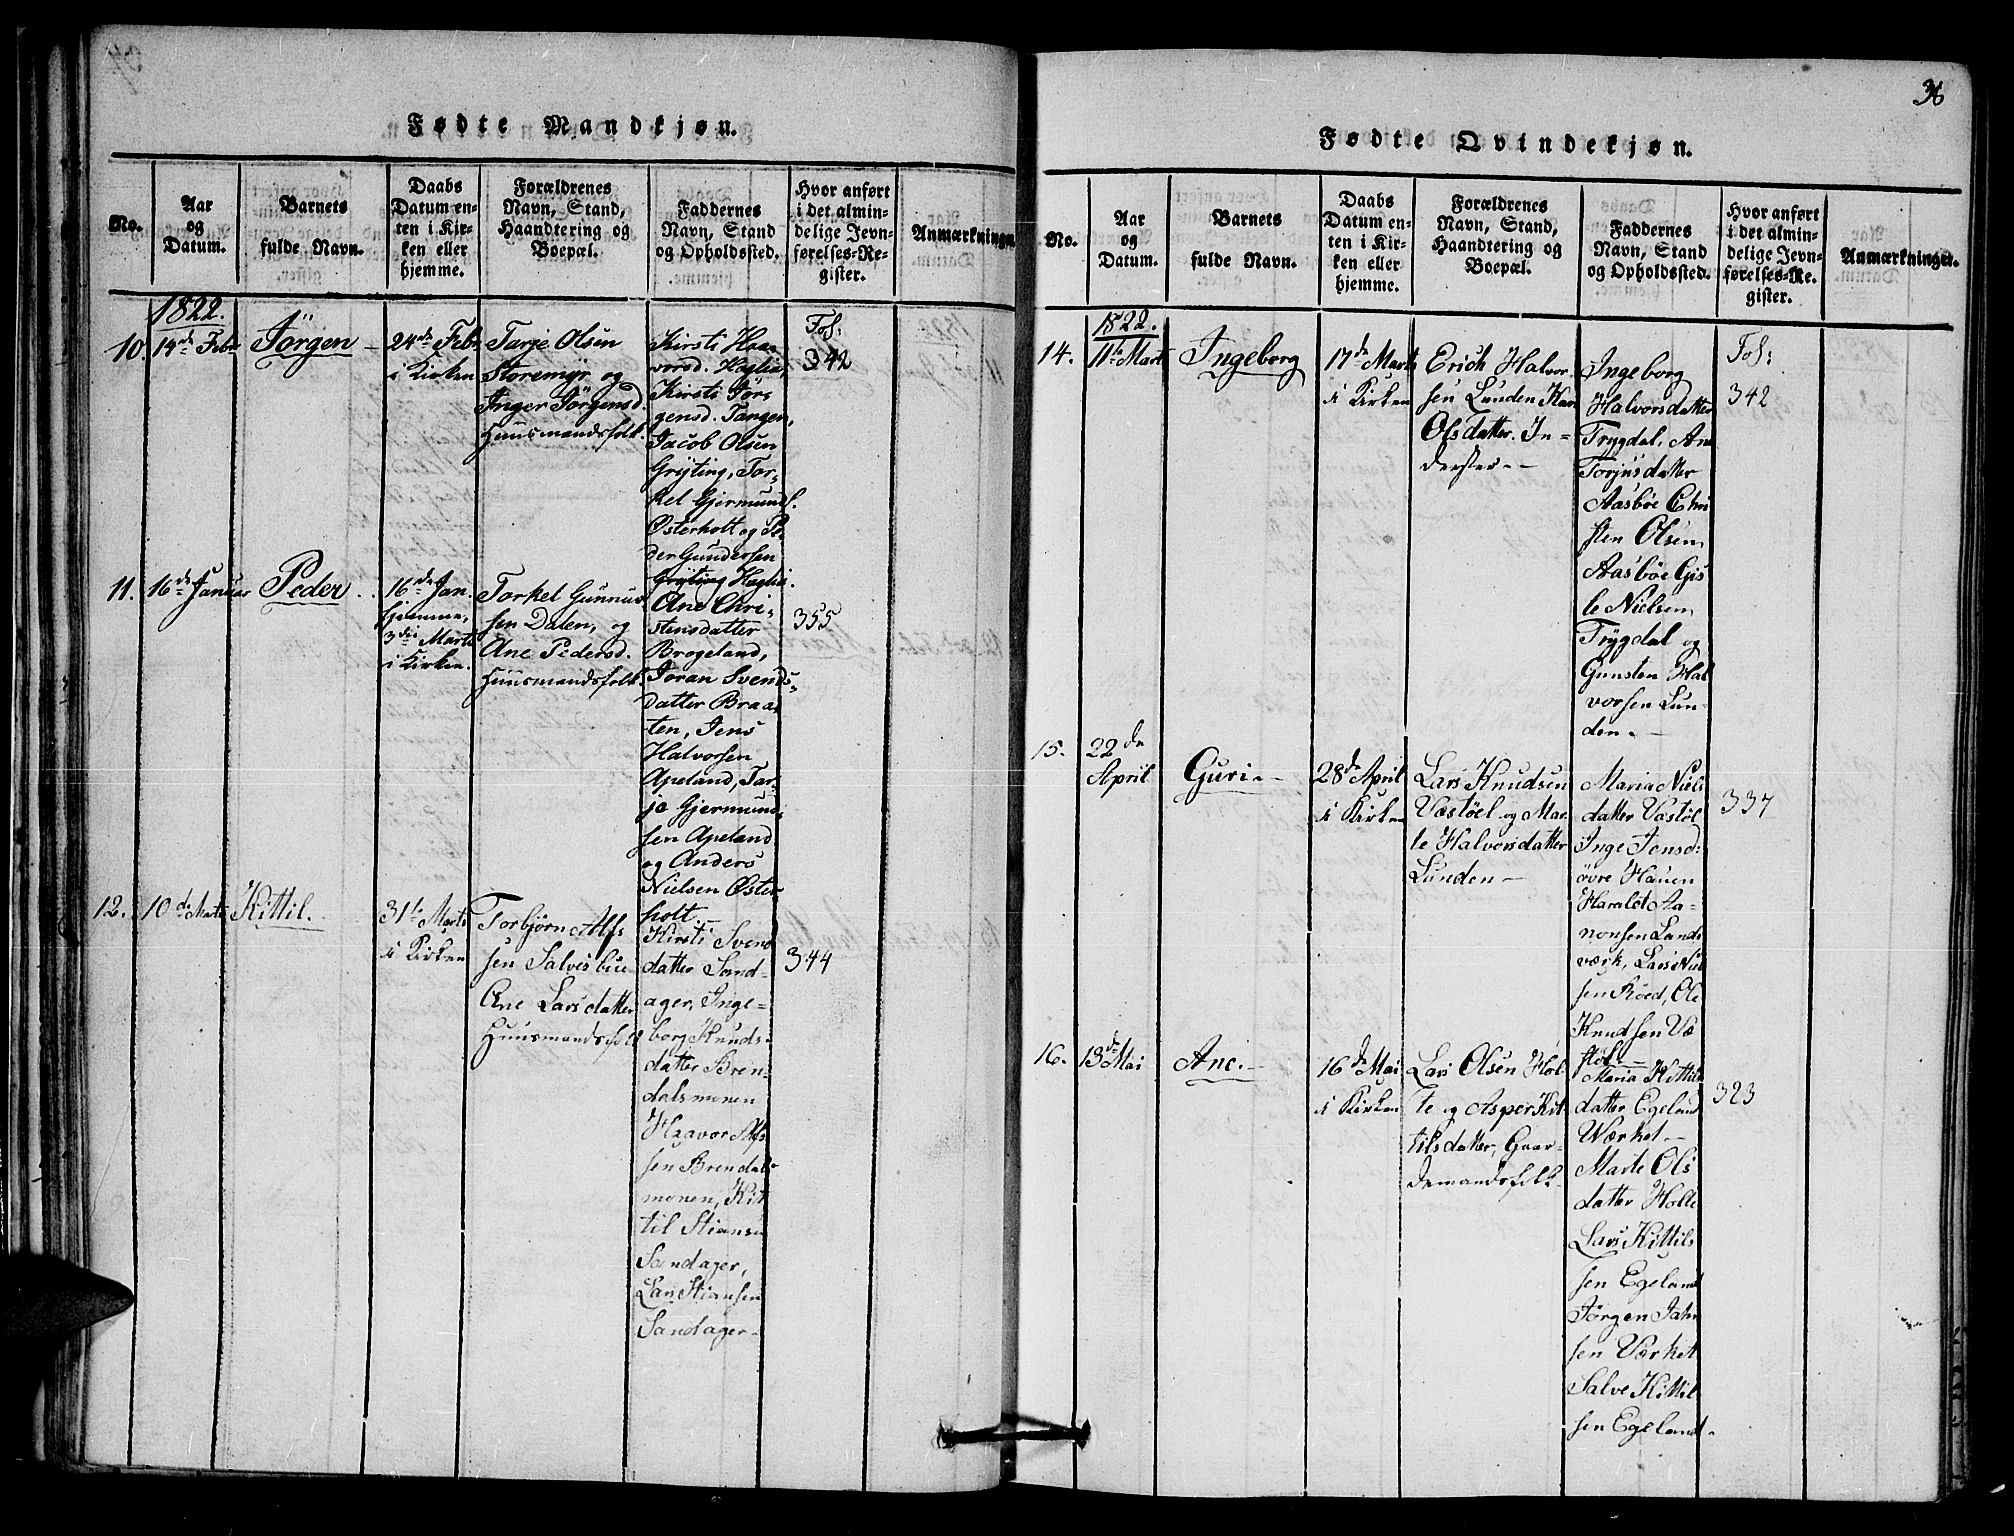 Fødte Mandkjøn.
No.
Aar
og
Datum.
Barnets
fulde Navn.
Daabs
Datum en-
ten i Kir-
ken eller
hjemme.
Forældrenes
Navn, Stand,
Haandtering og
Boepæl.
Faddernes
Navn, Stand
og Opholdssted.
Hvor anført
i det almin-
delige Jevn-
førelses-Re-
gister.
Anmærkninger
1822.
10.
14de Febr
Jörgen
24de Febr
i Kirken
Tarje Olsen
Storemyr og
Inger Jörgensd.
Huusmandsfolk.
Kirsti Haa-
vorsd. Haglia,
Kirsti Jör-
gensd. Tangen,
Jacob Olsen
Gryting, Tor-
kel Gjermunds.
Østerholt og Pe
der Gundersen
Gryting Haglia.
Fol:
342
11.
16de Januar
Peder
16de Jan.
hjemme,
3die Marts
i Kirken.
Torkel Gunnuv
sen Dalen, og
Ane Pedersd.
Huusmandsfolk.
Ane Chri-
stensdatter
Brogeland,
Joran Svends-
datter Braa-
ten, Jens
Halvorsen
Apeland, Tar-
je Gjermund-
sen Apeland
og Anders
Nielsen Øster
holt.
355
12.
10de Marts
Kittil.
31te Marts
i Kirken
Torbjörn Alfs
sen Salvesbue
Ane Larsdatter
Huusmandsfolk
Kirsti Svend
datter Sand-
ager, Inge-
borg Knuds-
datter Bren-
dalsmonen
Haavor Alf-
sen Brendals-
monen, Kit
til Stiansen
Sandager,
Lars Stiansen
Sandager-
344
36
Fødte Qvindekjøn.
No.
Aar
og
Datum.
Barnets
fulde Navn.
Daabs
Datum en-
ten i Kir-
ken eller
hjemme.
Forældrenes
Navn, Stand,
Haandtering og
Boepæl.
Faddernes
Navn, Stand
og Opholdssted.
Hvor anført
i det almin-
delige Jevn-
førelses-Re-
gister.
Anmærkninger.
1822.
14.
11te Marts
Ingeborg
17de Marts
i Kirken
Erich Halvor-
sen Lunden Kari
Olsdatter. In-
derster--
Ingeborg
Halvorsdatter
Trygdal. Ane
Torjusdatter
Aasböe Chri
sten Olsen,
Aasböe Gis
le Nielsen,
Trygdal og
Gunsten Hal
vorsen Lun-
den.-
Fol:
342
15.
22de
April
Guri.-
28de April
i Kirken
Lars Knudsen
Væstöel og Mar-
te Halvorsdatter
Lunden-
Maria Niels
datter Væstöl
Inge Jensd:
övre Hauen
Harald Aa-
nonsen Lands
værk, Lars Niel
sen Röed, Ole
Knudsen Væ
stöl.-
337
16.
13de Mai
Ane.-
16de Mai
i Kirken
Lars Olsen Hol-
te og Asper Kit-
tilsdatter, Gaar-
demandsfolk-
Maria Kittils
datter Egeland
Værket-
Marte Ols
datter Holte
Lars Kittils
sen Egeland
Jörgen Jahn
sen Værket
Salve Kittil
sen Egeland-
323